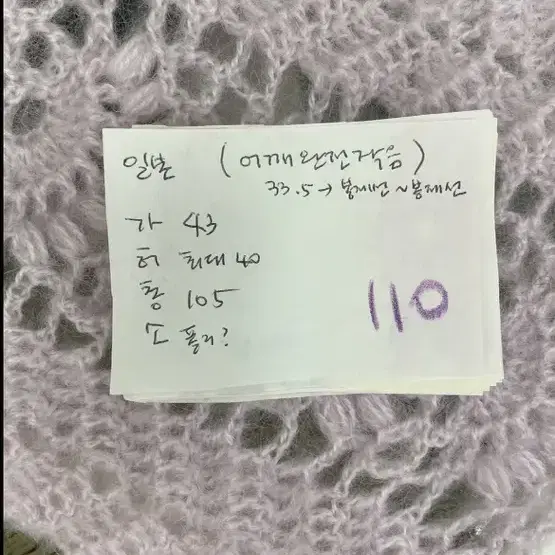 일본 (어깨완전작음)
33.5→봉제선~봉제선
가 43
허 최대 40
총 105
소 폴리?
110